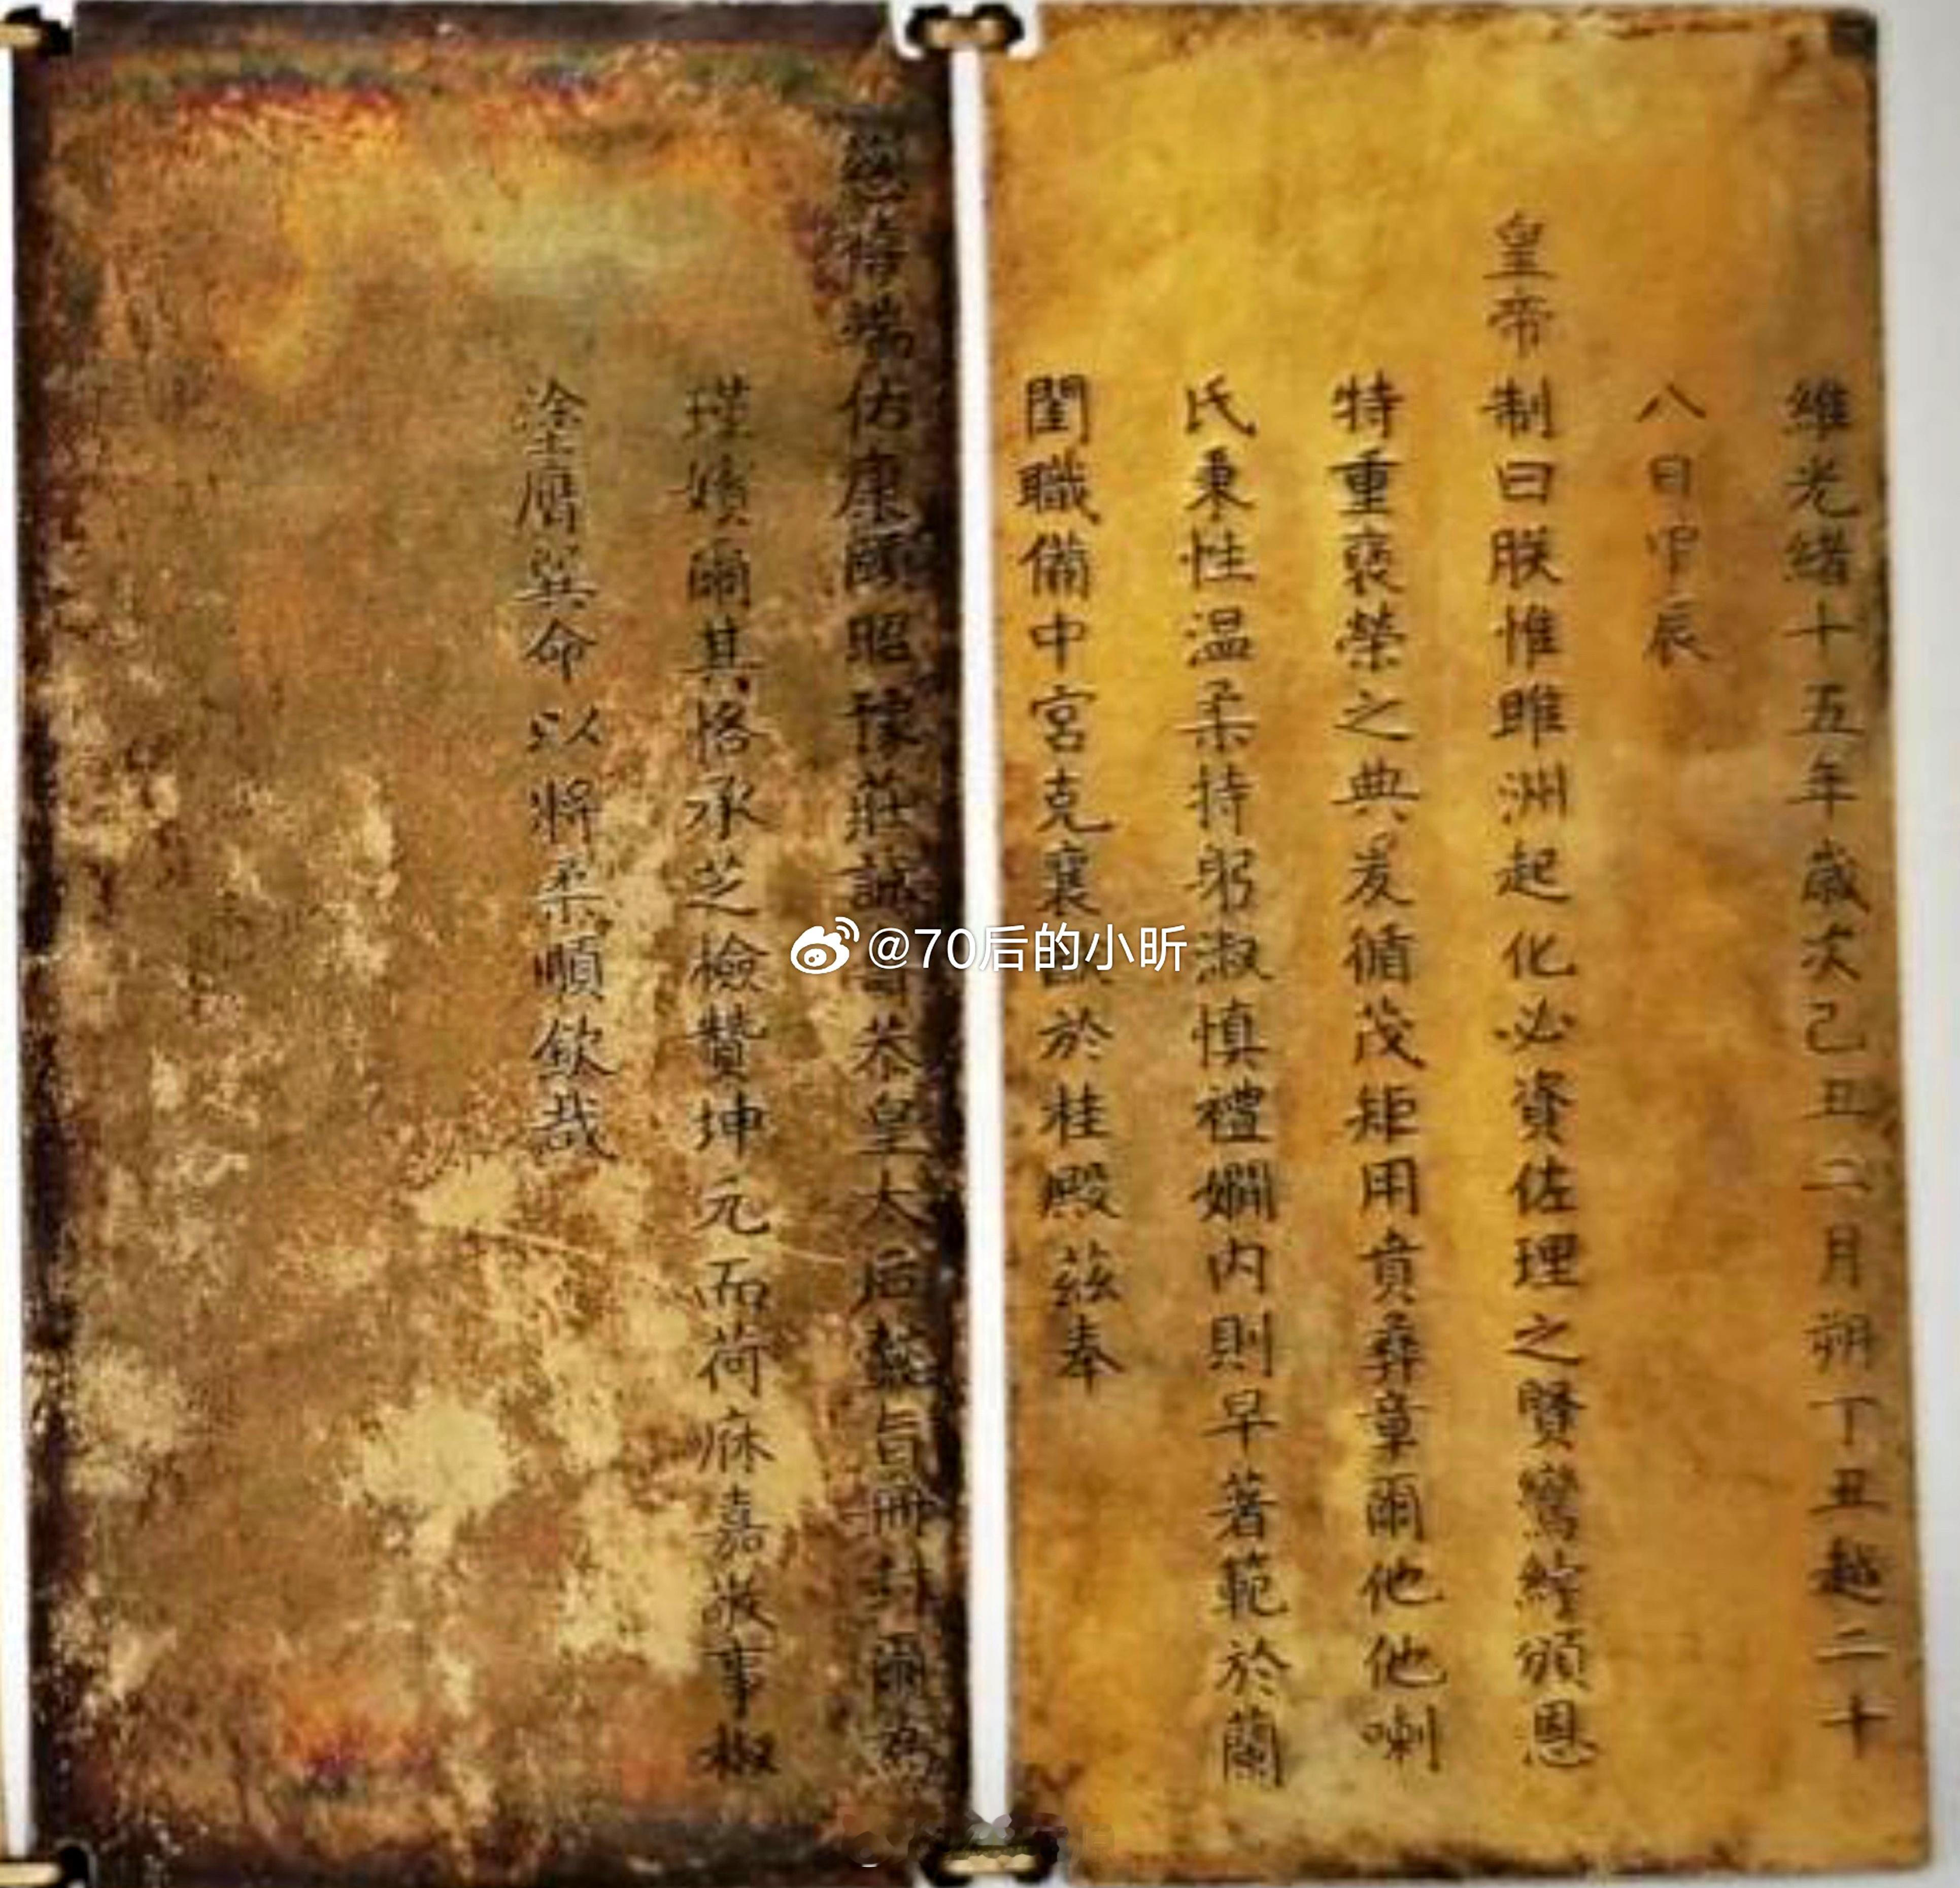 維光緒十五年歲次己丑二月朔丁丑越二十
八日甲辰
皇帝制曰朕惟雎洲起化必資佐理之賢鸞綍頒恩
特重褒榮之典爰循茂矩用賁彝章爾他他喇
氏秉性溫柔持躬淑慎禮嫻内則早著範於蘭
閨職備中宮克襄猷於桂殿茲奉
慈禧端佑康頤昭豫莊誠壽恭皇太后懿旨冊封爾為
瑾嬪爾其恪承芝檢贊坤元而荷庥嘉敬事椒
塗膺巽命以將柔順欽哉
@70后的小昕